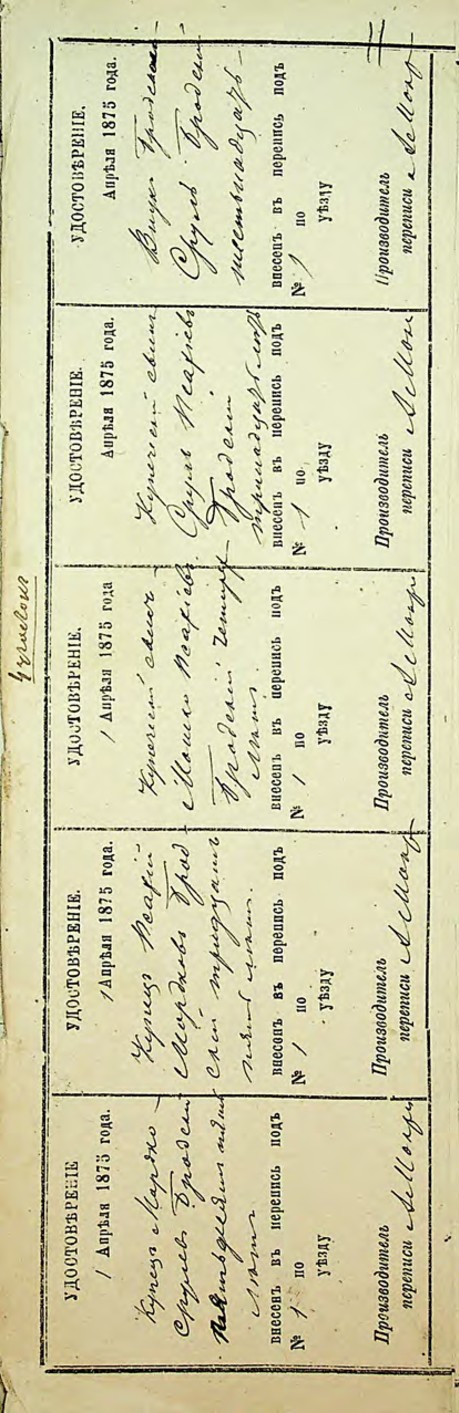 УДОСТОВѢРЕНІЕ
1 Апрѣля 1875 года.
Купецъ Мордко
Срулевъ Бродскій
пятьдесятъ
лѣтъ
внесенъ въ перепись подъ
№ 1 по
уѣзду
Производитель
переписи
УДОСТОВѢРЕНІЕ.
1 Апрѣля 1875 года.
Купецъ Исакій
Мордковъ Брод
скій тридцать
лѣтъ.
внесенъ въ перепись подъ
№ 1 по
уѣзду
Производитель
переписи
УДОСТОВѢРЕНІЕ.
1 Апрѣля 1875 года
Купеческій сынъ
Мошко Исакіевъ
Бродскій
лѣтъ.
внесенъ въ перепись подъ
№ 1 по
уѣзду
Производитель
переписи
УДОСТОВѢРЕНІЕ.
Апрѣля 1875 года.
Купеческій сынъ
Сруль Исакіевъ
Бродскій
внесенъ въ перепись подъ
№ 1 по
уѣзду
Производитель
переписи
УДОСТОВѢРЕНІЕ.
Апрѣля 1875 года.
Внукъ Бродскій
Сруль Бродскій
внесенъ въ перепись подъ
№ 1 по
уѣзду
Производитель
переписи